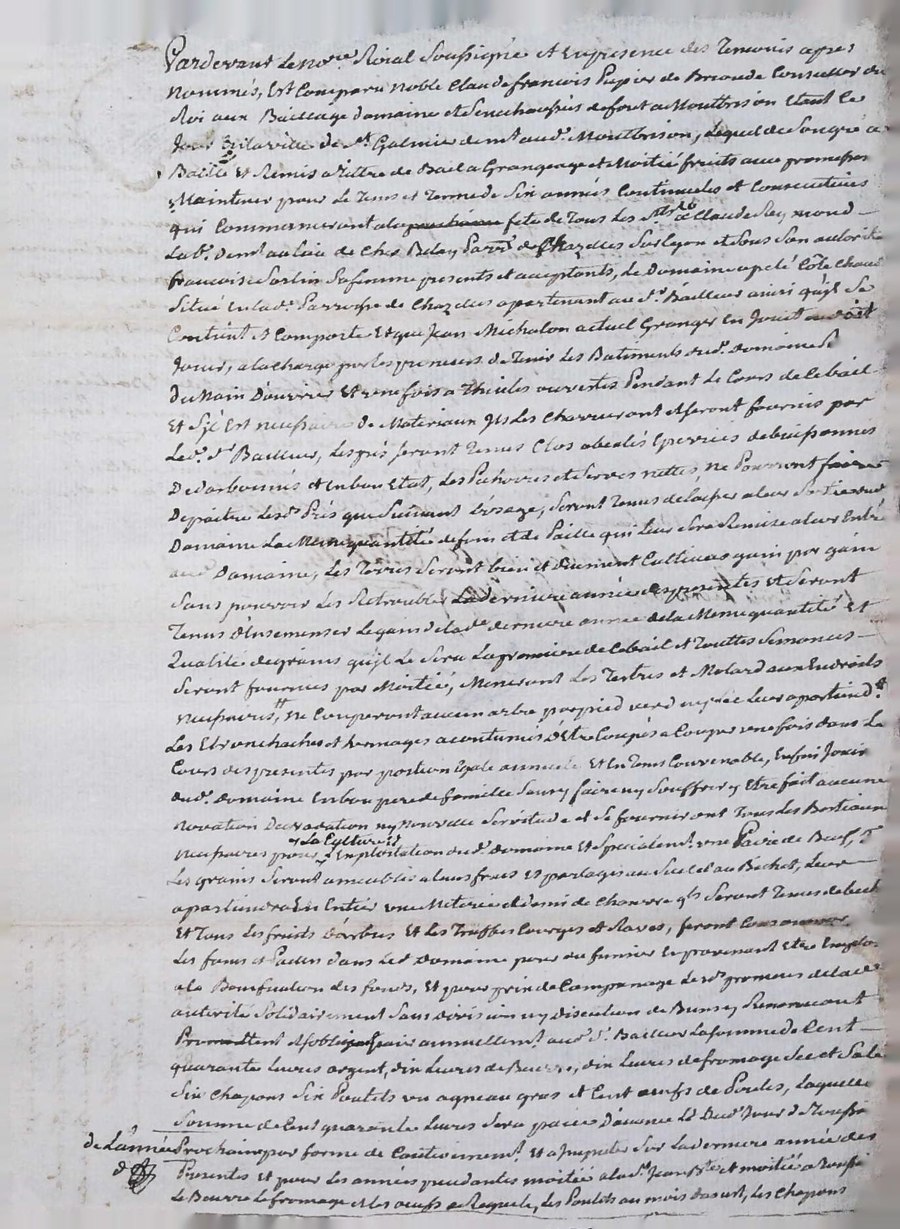 Pardevant le no.re Roial Soussigné et En presence des Temoins apres
nommés, Est Comparu noble Claude francois Papier de Conseiller du
Roi aux Bailliage domaine et Senechaussés de foret a Montbrison Etant Ce
Jour En la ville de St. Galmier dem.t aud. Montbrison, Lequel de Son gré a
Baillé Et Remis a titre de Bail a Grangeage et Moitié fruits avec promesse
Maintenir pour Le Tems et Terme de Six années Continuelles et Consecutives
qui Commenceront a la prochaine fete de Tous Les Sts. a Claude
Lab.r dem.t au lieu de Chez Parr. de Chazelles Sur Lyon et Sous Son autorité
francoise Sa femme presents et acceptants, Le Domaine apelé Côte Chaude
Situé En lad. Parroisse de Chazelles apartenant au S. Bailleur ainsi qu'il Se
Contient et Comporte Et que Jean Michalon actuel Granger En Jouit ou doit
Jouir, a la charge par les preneurs de Tenir Les Batiments dud. domaine
Du Main D'ouvrier Et une fois a Thuiles ouvertes Pendant Le Cours de Ce bail
Et S'jl Est necessaire De Materiaux jls Les Charrieront et Seront fournis par
Led. S. Bailleur, Les prés Seront Tenus Clos de buissonnés
et En bon Etat, Les et Serves nettes, ne Pourront faire
Depaitre Lesd. Prés que Suivant L'usage, Seront Tenus de laisser a leur Sortie dud.
Domaine La Meme quantité de foin et de Paille qui Leur Sera Remise a leur Entrée
aud. Domaine, Les Terres Seront bien et duement Cultivées gain par gain
Sans pouvoir Les Retroubler La derniere année des presentes et Seront
Tenus d'Ensemenser Le gain de lad. derniere année de la Meme quantité et
Qualité de grains qu'jl Le Sera La premiere de Ce bail et Touttes Semences
Seront fournies par Moitié, Meneront Les Tertres et Molard aux Endroits
necessaires, ne Couperont aucun arbre par pied verd ny sec Leur apartiend.t
Les et hermages acoutumés d'Etre Coupés a Couper une fois dans Le
Cours des presentes par portion Egale annuelle Et En Tems Convenable, Enfin Jouir
dud. domaine En bon pere de famille Sans y faire ny Souffrir y Etre fait aucune
novation ny nouvelle Servitude et Se fourniront Tous Les Bestiaux
necessaires pour L'Exploitation dud. domaine Et Specialem.t une Paire de Beufs,
La Culture et
Les grains Seront a leurs frais Et partagés au Sueil au Bichet, Leur
apartiendra En Entier une Meterée et demi de Chanvre qls Seront Tenus de
Et Tous Les fruits d'arbres Et Les Truffes Courges et Raves, feront Consommer
Les foins et Pailles dans Led. Domaine pour du fumier En provenant Etre Emploié
a la Bonification des fonds, Et pour prix de Campanage Lesd. preneurs de lade.
autorité Solidairement Sans division ny discution de Biens y Renoncant
Promettent et S'obligent paier annuellem.t aud. S. Bailleur La Somme de Cent
quarante Livres argent, dix Livres de Beurre, dix Livres de fromage Sec et Salé
Six chapons Six Poulets un agneau gras et Cent œufs de Poules, Laquelle
Somme de Cent quarante Livres Sera paiée D'avance Jour de Toussaint
de L'année Prochaine par forme de Cautionnem.t Et a Jmputer Sur La derniere année des
Presentes et pour Les années pendantes moitié a la St. Jean Bte. et moitié a Toussaint
Le Beurre Le fromage et Les œufs a Requete, Les Poulets au mois d'aout, Les Chapons